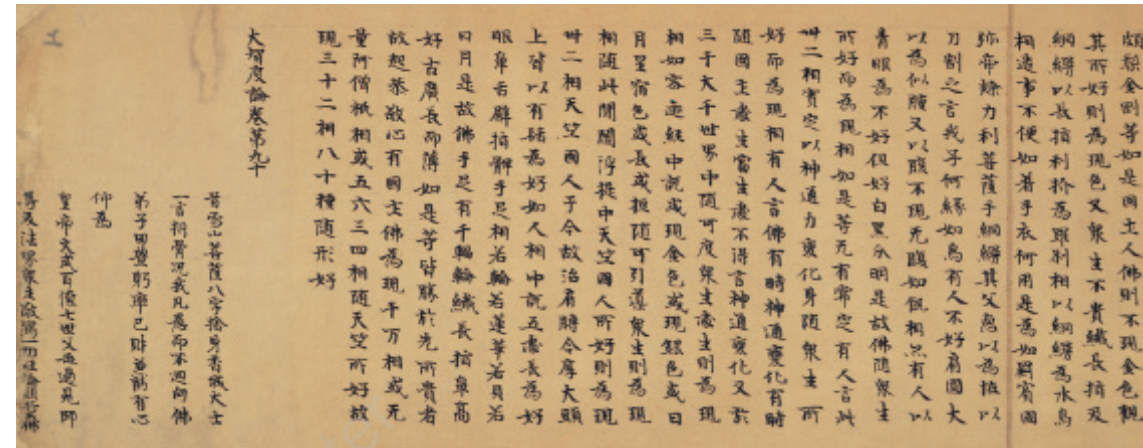 頗梨金剛等如是国土人佛則不現金色觀
其所好則為現色又衆生不貴纖長指及
網縵以長指利抓為羅刹相以網縵為水鳥
相造事不便如著手衣何用是為如罽賓国
弥帝隸力利菩薩手網縵其父惡以為怪以
刀割之言我子何縁如鳥有人不好肩圓大
以為似腫又以腹不現无腹如餓相亦有人以
青眼為不好但好白黒分明是故佛随衆生
所好而為現相如是等无有常定有人言此
卅二相實定以神通力變化身随衆生所
好而為現相有人言佛有時神通變化有時
随國土處生當生處不得言神通變化又於
三千大千世界中随可度衆生處生則為現
相如密迹經中說或現金色或現銀色或日
月星宿色或長或短随可引導衆生則為現
相随此閒閻浮提中天竺國人所好則為現
卅二相天竺國人于今故治肩髆令厚大頭
上皆以有結為好如人相中說五處長為好
眼鼻舌臂指髀手足相若輪若蓮華若貝若
日月是故佛手足有千輻輪纖長指鼻高
好舌廣長而薄如是等皆勝於先所貴者
故起恭敬心有國土佛為現千万相或无
量阿僧祇相或五六三四相随天竺所好故
現三十二相八十種随形好
大智度論卷第九十
昔雪山菩薩八字捨身香城大士
一言析骨況我凡愚而不迴向佛
弟子田豐躬率己財兼勸有心
仰為
皇帝文武百僚七世父母過見師
尊及法界衆生敬寫一切經論